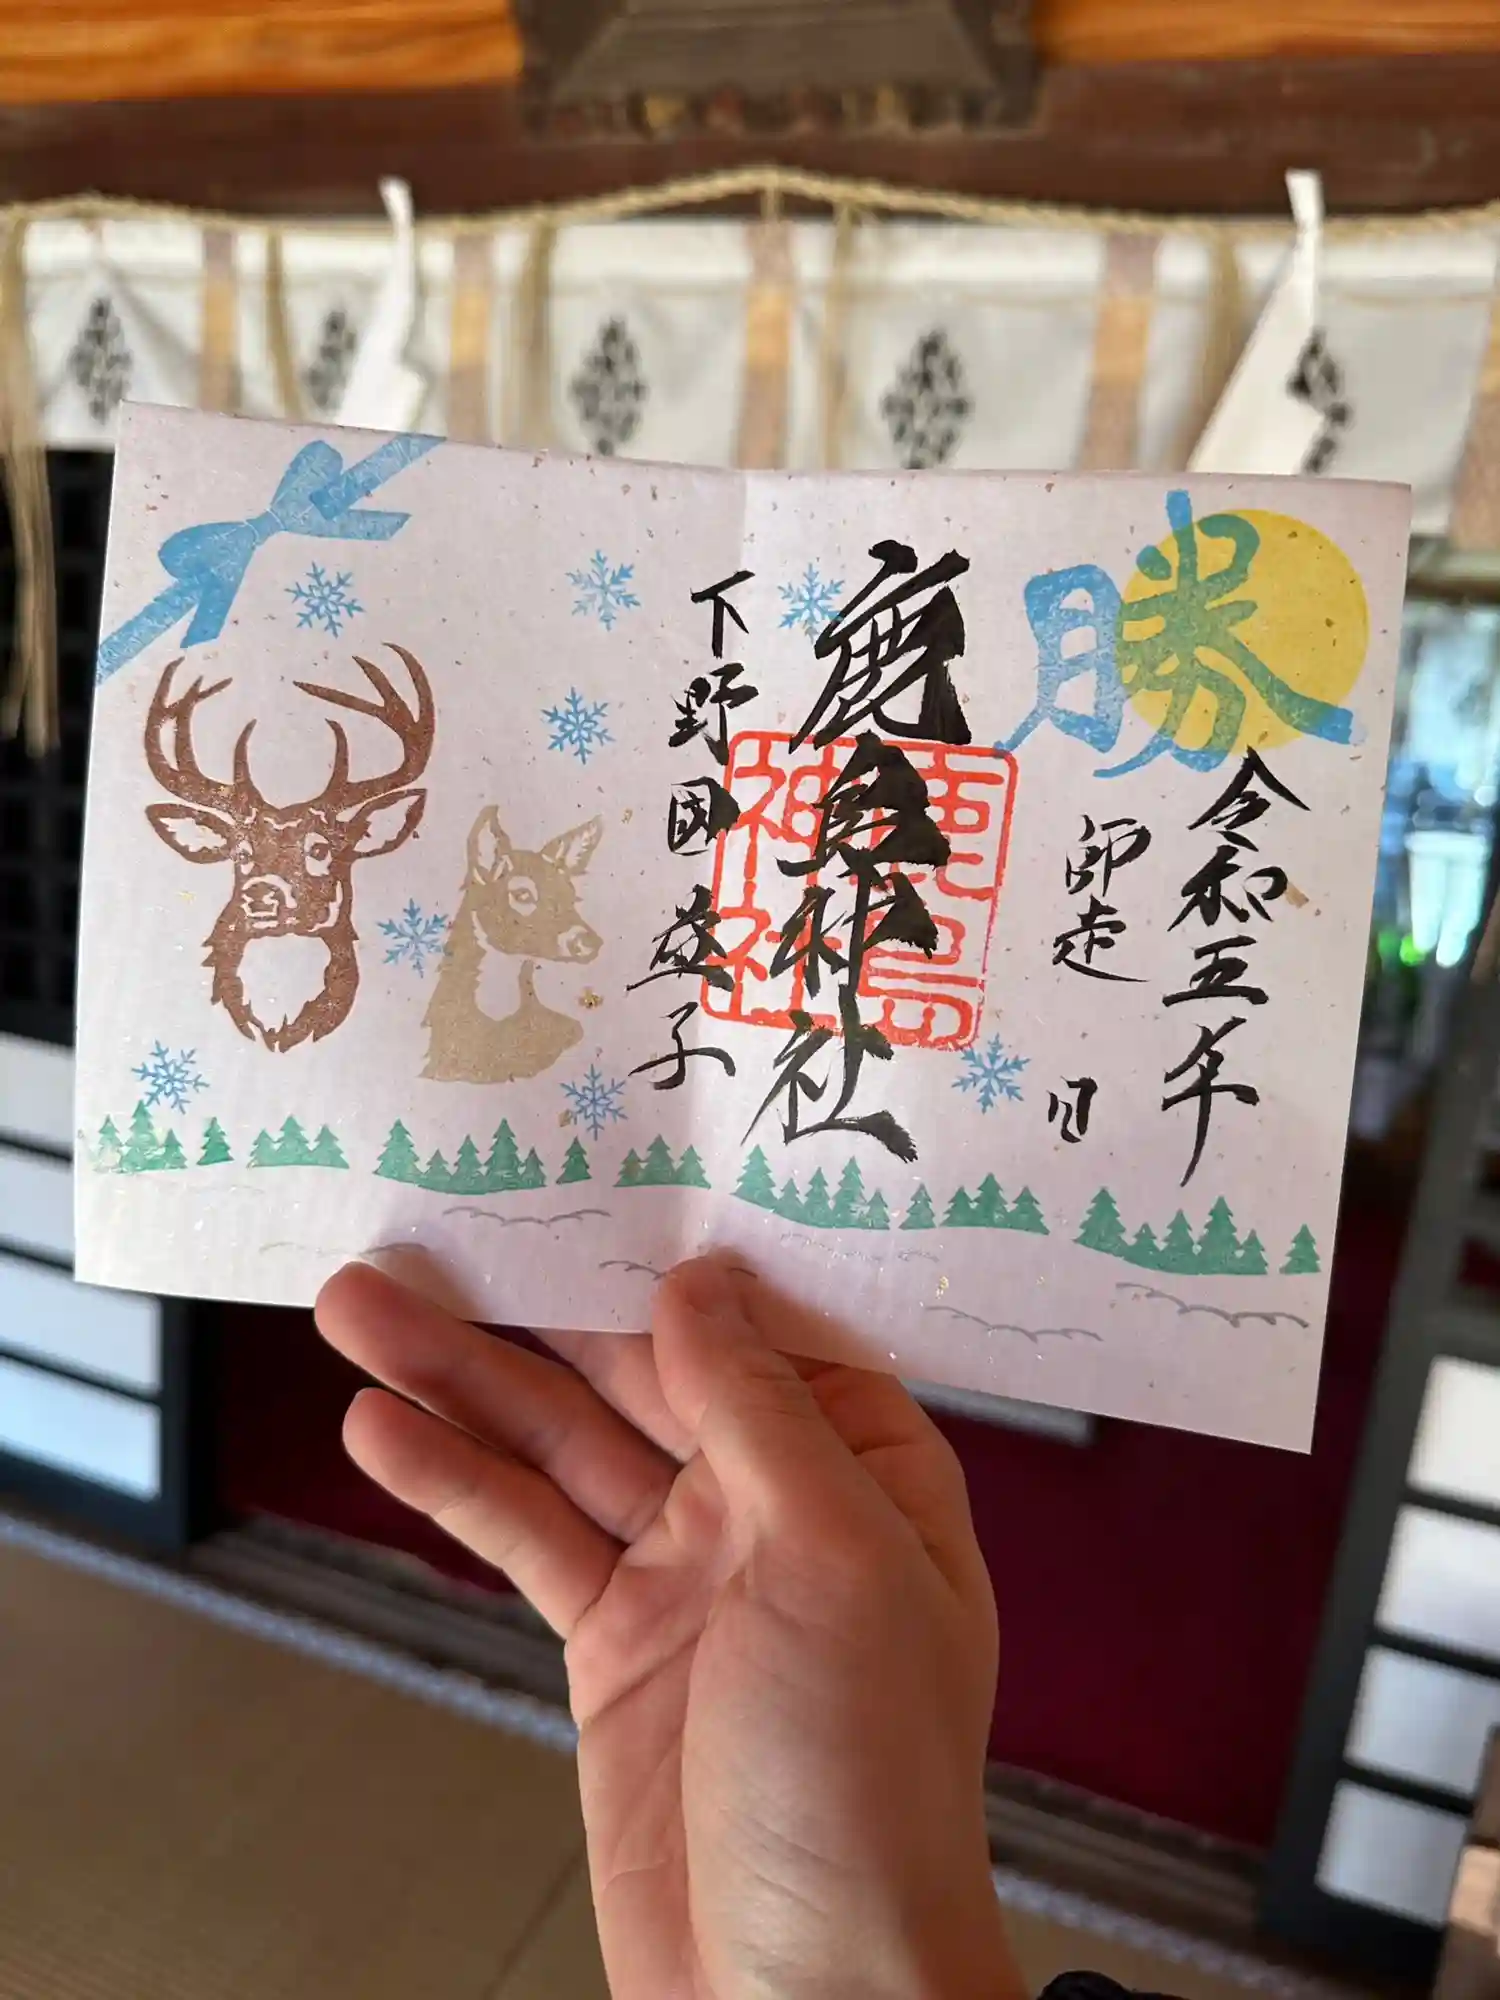 勝
令和五年
師走 日
鹿島神社
鹿島
神社
下野国 益子